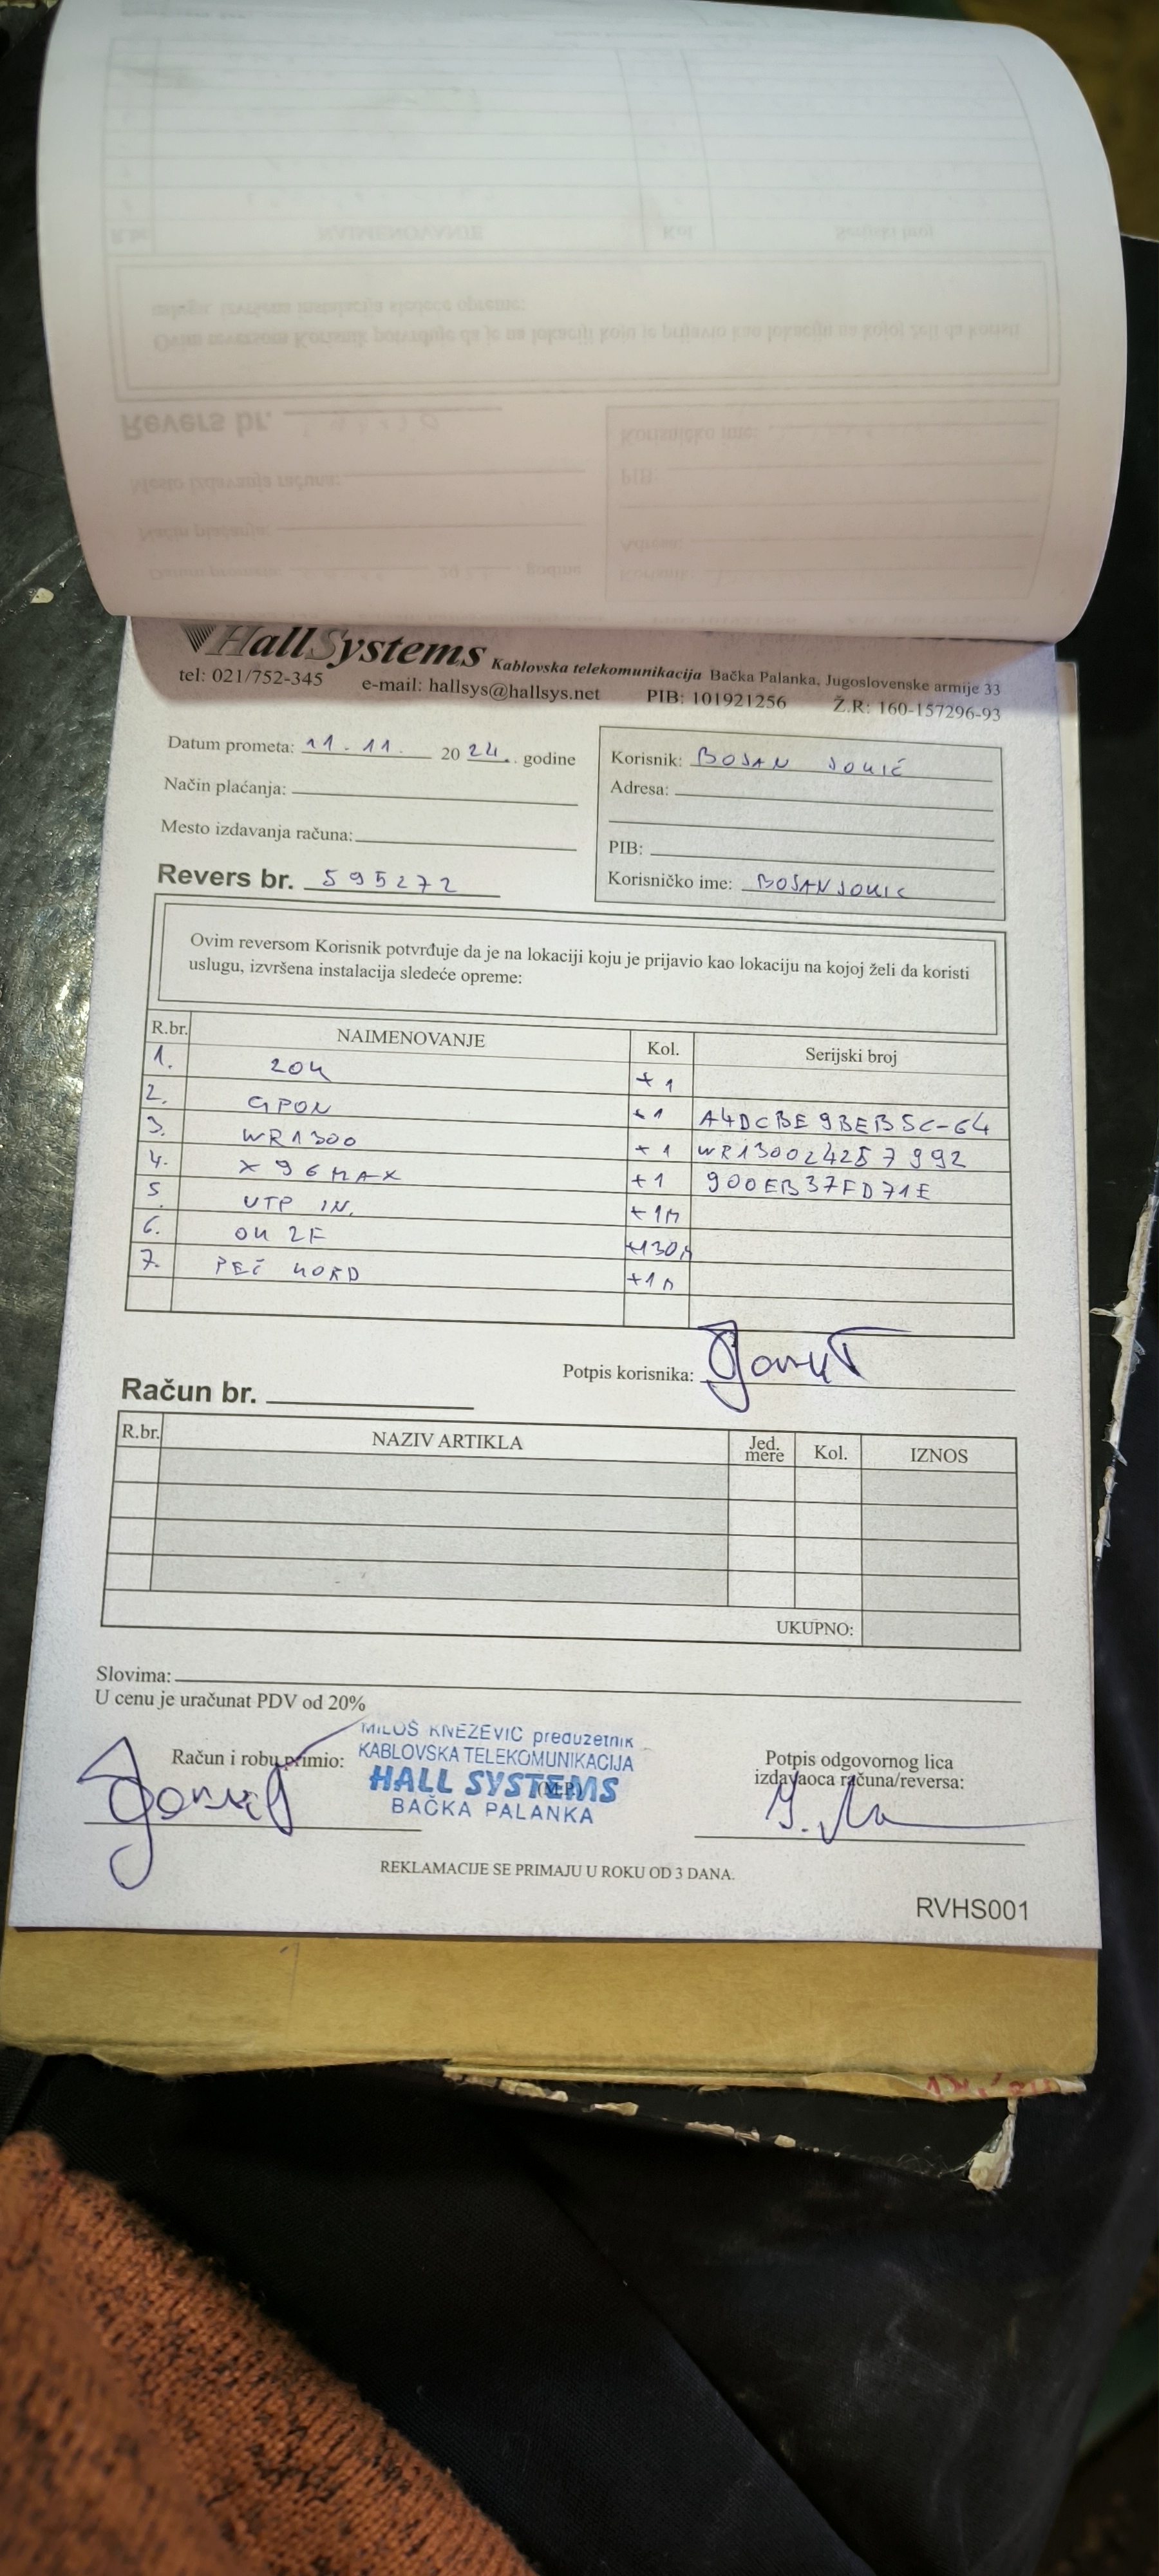 HallSystems Kablovska telekomunikacija Bačka Palanka, Jugoslovenske armije 33
tel: 021/752-345 e-mail: hallsys@hallsys.net PIB: 101921256 Ž.R: 160-157296-93
Datum prometa: 11.11. 2024. godine
Način plaćanja:
Mesto izdavanja računa:
Revers br. 595272
Korisnik: BOJAN JOKIĆ
Adresa:
PIB:
Korisničko ime: BOJANJOKIC
Ovim reversom Korisnik potvrđuje da je na lokaciji koju je prijavio kao lokaciju na kojoj želi da koristi
uslugu, izvršena instalacija sledeće opreme:
R.br. NAIMENOVANJE Kol. Serijski broj
1. ZOK +1
2. GPON +1 A4DCBE9BEB5C-64
3. WR1300 +1 WR130024257992
4. X96MAX +1 900EB37FD71E
5. UTP IN. +1m
6. OK 2F +130m
7. PEČ KORD +1m
Potpis korisnika:
Račun br.
R.br. NAZIV ARTIKLA Jed. mere Kol. IZNOS
UKUPNO:
Slovima:
U cenu je uračunat PDV od 20%
Račun i robu primio:
MILOŠ KNEŽEVIĆ preduzetnik
KABLOVSKA TELEKOMUNIKACIJA
HALL SYSTEMS
(M.P.)
BAČKA PALANKA
Potpis odgovornog lica
izdavaoca računa/reversa:
REKLAMACIJE SE PRIMAJU U ROKU OD 3 DANA.
RVHS001